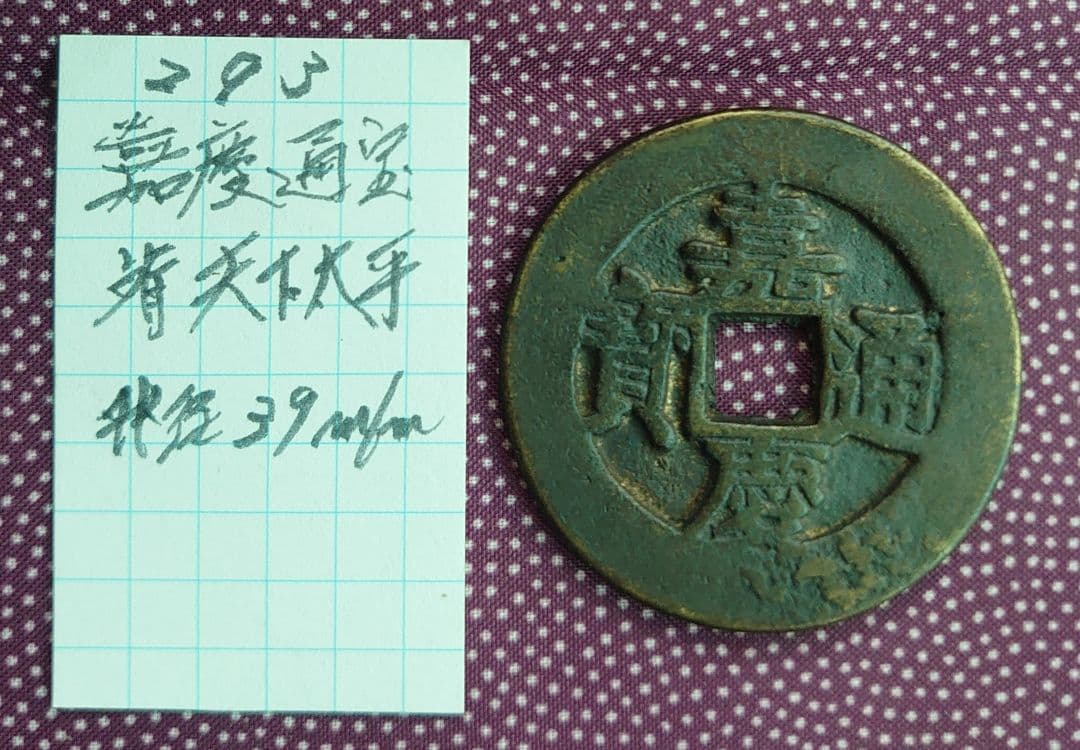 293
嘉慶通宝
背天下太平
径 39 m/m
嘉慶通寶